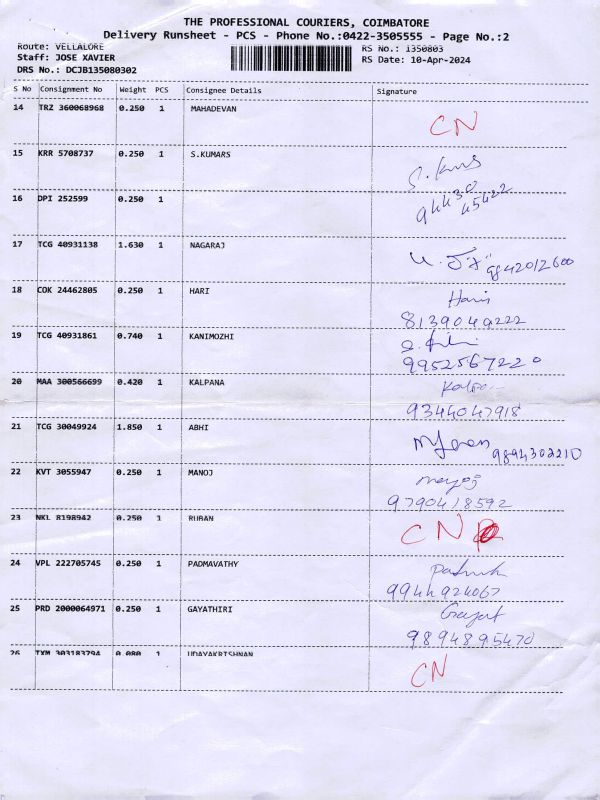 THE PROFESSIONAL COURIERS, COIMBATORE
Delivery Runsheet - PCS - Phone No.:0422-3505555 - Page No.:2
Route: VELLALORE RS No.: 1350803
Staff: JOSE XAVIER RS Date: 10-Apr-2024
DRS No.: DCJB135080302
S No Consignment No Weight PCS Consignee Details Signature
14 TRZ 360068968 0.250 1 MAHADEVAN
CN
15 KRR 5708737 0.250 1 S.KUMARS
S. Kums
16 DPI 252599 0.250 1
94430
45422
17 TCG 40931138 1.630 1 NAGARAJ
9842012600
18 COK 24462805 0.250 1 HARI
Haris
8139049222
19 TCG 40931861 0.740 1 KANIMOZHI
9952567220
20 MAA 300566699 0.420 1 KALPANA
9344047918
21 TCG 30049924 1.850 1 ABHI
9894302210
22 KVT 3055947 0.250 1 MANOJ
manoj
9790418592
23 NKL 8198942 0.250 1 RUBAN
CN
24 VPL 222705745 0.250 1 PADMAVATHY
9944924067
25 PRD 2000064971 0.250 1 GAYATHIRI
Gayat
9894895470
26 TXM 303183794 0.080 1 UDAYAKRISHNAN
CN